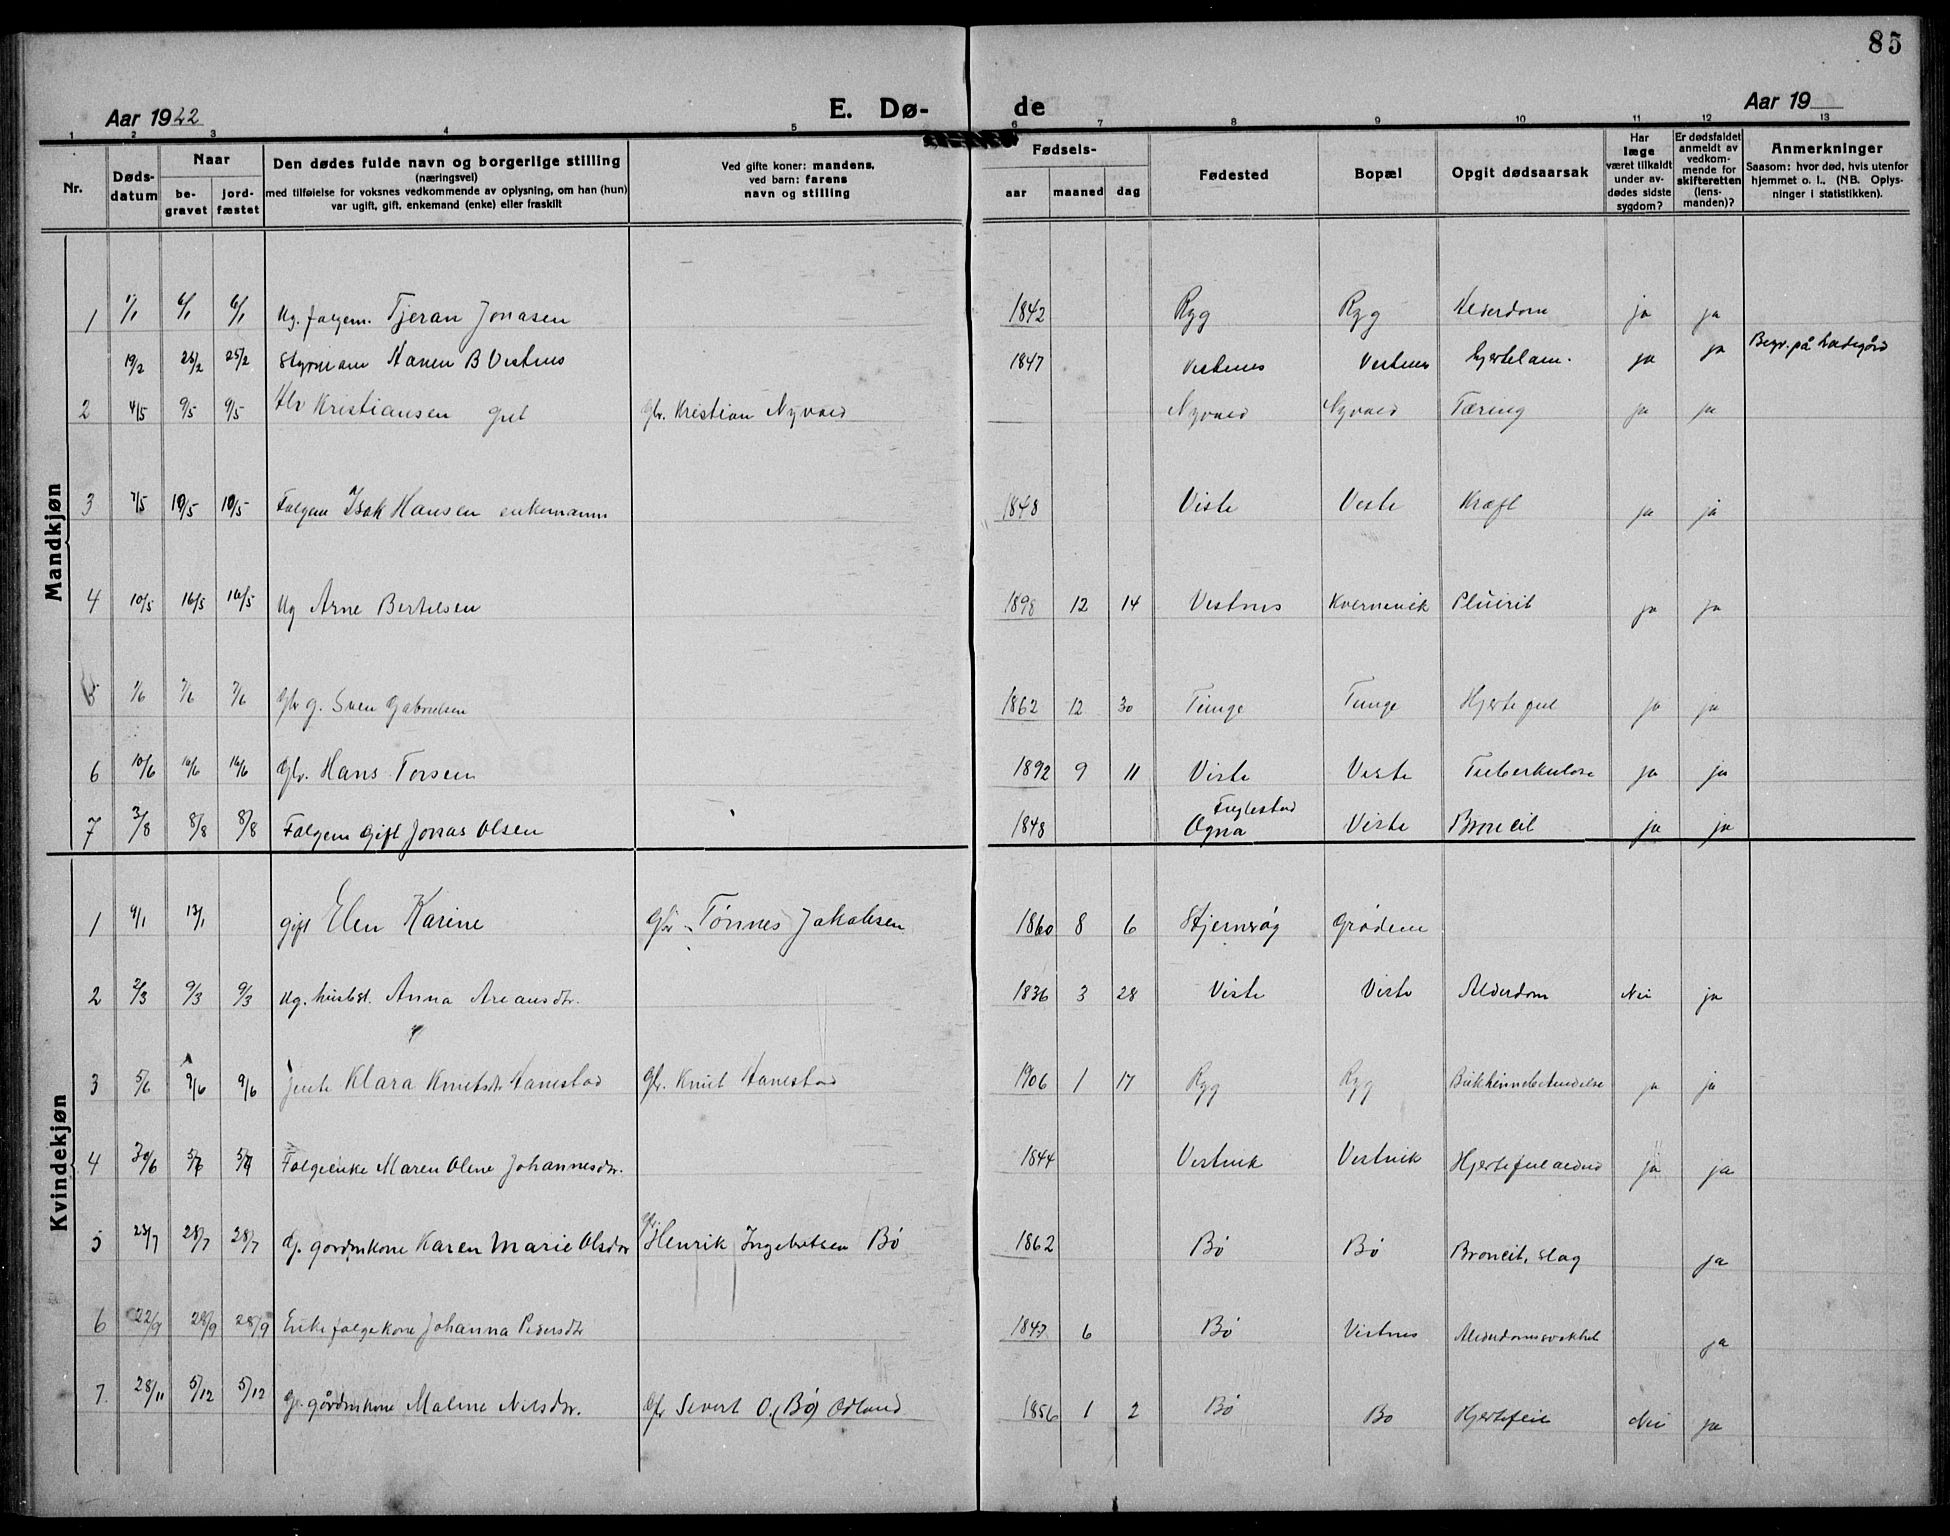 85
Aar 1922 E. Dø- de Aar 19
1 2 3 4 5 6 7 8 9 10 11 12 13
Nr. Døds-datum Naar be-gravet jord-fæstet Den dødes fulde navn og borgerlige stilling (næringsvei) med tilføielse for voksnes vedkommende av oplysning, om han (hun) var ugift, gift, enkemand (enke) eller fraskilt Ved gifte koner: mandens, ved barn: farens navn og stilling Fødsels- aar maaned dag Fødested Bopæl Opgit dødsaarsak Har læge været tilkaldt under av-dødes sidste sygdom? Er dødsfaldet anmeldt av vedkom-mende for skifteretten (lens-manden)? Anmerkninger Saasom: hvor død, hvis utenfor hjemmet o. l., (NB. Oplys-ninger i statistikken).
Mandkjøn
1 1/1 6/1 6/1 Ug. folgem. Tjeran Jonasen 1842 Ryg Ryg Alderdom ja ja
19/2 25/2 25/2 Styrmann B Vistnes 1847 Vistnes Vistnes Hjertelam. ja ja Begr. på
2 4/5 9/5 9/5 Kristiansen Gbr. Kristian Nyvold Nyvold Nyvold Tæring ja ja
3 7/5 10/5 10/5 Folgem Isak Hansen enkemann 1848 Viste Viste Kræft ja ja
4 10/5 16/5 16/5 Ug Arne Bertelsen 1898 12 14 Vistnes Kvernevik Pluirit ja ja
5 1/6 7/6 7/6 Gbr g. Sven Gabrielsen 1862 12 30 Tunge Tunge Hjertefeil ja ja
6 10/6 16/6 16/6 Gbr. Hans Torsen 1892 9 11 Viste Viste Tuberkulose ja ja
7 3/8 8/8 8/8 Folgem gift Jonas Olsen 1848 Fuglestad Ogna Viste Broncit ja ja
Kvindekjøn
1 9/1 13/1 gift Elen Karine Gbr Tønnes Jakobsen 1860 8 6 Stjernrøg Grødem
2 2/3 9/3 9/3 Ug. husbst. Anna Areansdtr. 1836 3 28 Viste Viste Alderdom Nei ja
3 5/6 9/6 9/6 Jente Klara Knutsdtr Hanestad Gbr. Knut Hanestad 1906 1 17 Ryg Ryg Bukhinnebetendelse ja ja
4 30/6 5/7 5/7 Folgeenke Maren Oline Johannesdtr. 1844 Vistvik Vistvik Hjertefeil ja ja
5 23/7 28/7 28/7 G. gardmkone Karen Marie Olsdtr Gbr. Henrik Ingebretsen Bø 1862 Bø Bø Broncit, slag ja
6 22/9 28/9 28/9 Enke folgekone Johanna Pedersdtr 1847 6 Bø Vistnes Alderdomssvakhet ja
7. 28/11 5/12 5/12 G. gårdmkone Maline Nilsdtr. Gbr Severt O. (Bø) Odland 1856 1 2 Bø Bø Hjertefeil Nei ja